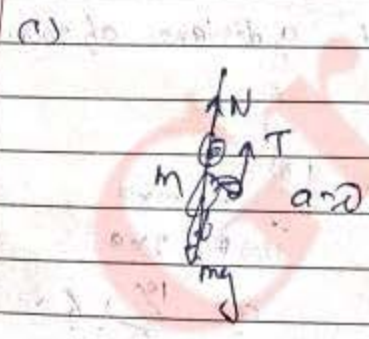 (1)
N
T
m
a=0
mg